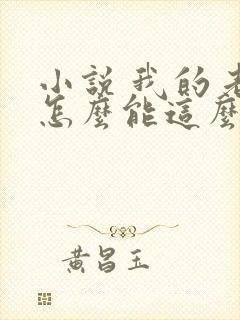 小說我的老
怎麼能這麼
黃昌玉